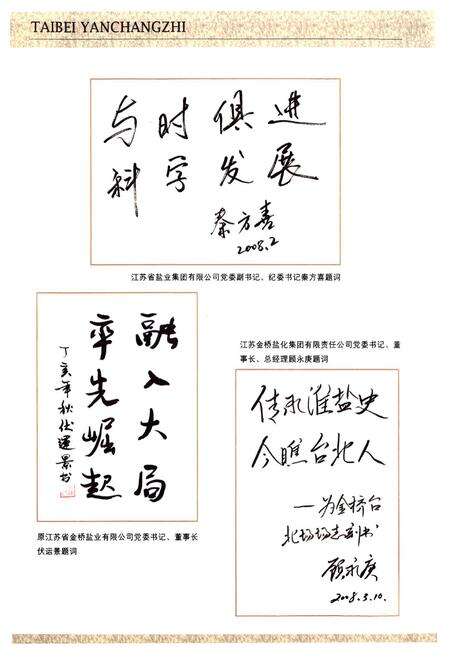 TAIBEI YANCHANGZHI
与时俱进
科学发展
秦方喜
2008.2
江苏省盐业集团有限公司党委副书记、纪委书记秦方喜题词
融入大局
率先崛起
丁亥年秋伏运景书
原江苏省金桥盐业有限公司党委书记、董事长
伏运景题词
江苏金桥盐化集团有限责任公司党委书记、董
事长、总经理顾永庚题词
传承淮盐史
今瞧台北人
——为金桥台
北场场志到书
顾永庚
2008.3.10.